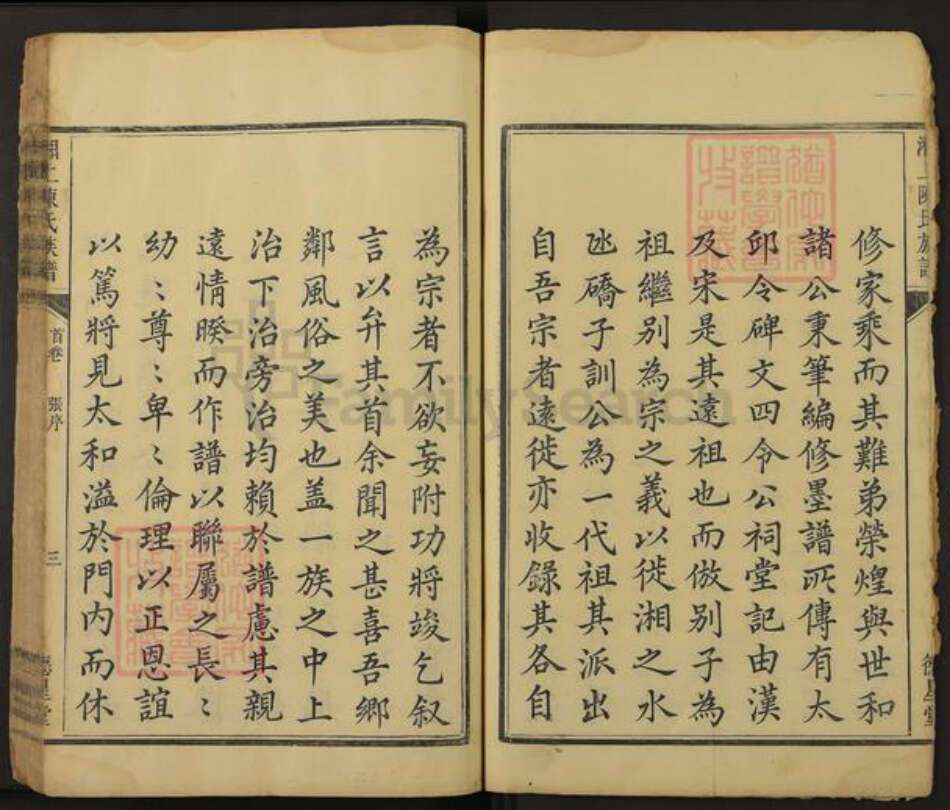 修家乘而其難弟榮煌與世和
諸公秉筆編修墨譜所傳有太
邱令碑文四令公祠堂記由漢
及宋是其遠祖也而倣別子為
祖繼別為宗之義以徙湘之水
氹礄子訓公為一代祖其派出
自吾宗者遠徙亦收錄其各自
為宗者不欲妄附功將竣乞叙
言以弁其首余聞之甚喜吾鄉
鄰風俗之美也盖一族之中上
治下治旁治均賴於譜慮其親
遠情暌而作譜以聯屬之長〻
幼〻尊〻卑〻倫理以正恩誼
以篤將見太和溢於門内而休
湘上陳氏族譜
首卷
張序
三
德星堂
FamilySearch